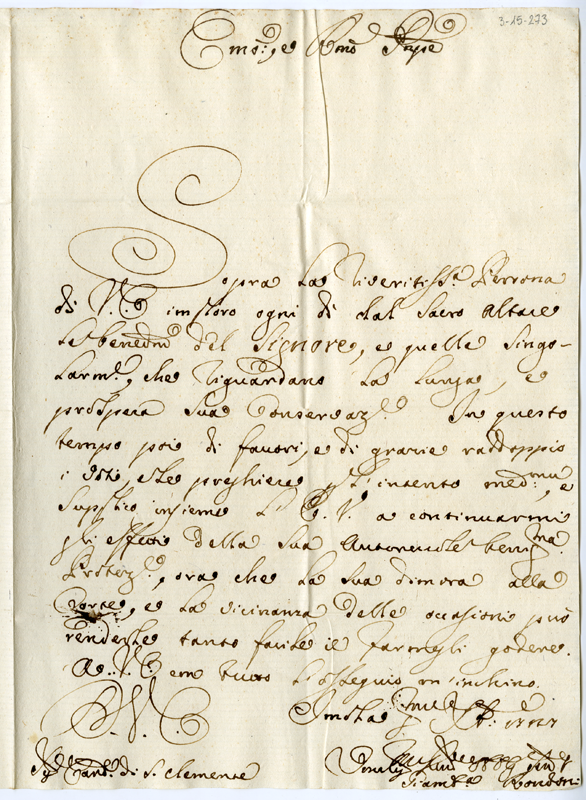 3-15-273
Emo:, e Rmo Prpe
Sopra la riveritiss.a Persona
di V.E imploro ogni dì dal sacro Altare
le bened.ni del Signore, e quelle singo-
larm.e, che riguardano la lunga, e
prospera sua Conservaz.e In questo
tempo poi di favori, e di grazie raddoppio
i voti, e le preghiere p l'intento med.mo, e
supplico insieme l'E.V. a continuarmi
gli effetti della sua autorevole benig.ma
Protez.e, ora che la sua dimora alla
Corte, e la vicinanza delle occasioni può
renderle tanto facile il farmeli godere.
A V.E em tutto l'ossequio m'inchino.
D.V.E Imola
Sig.r Card. di S. Clemente
Giamb.a Bondoni